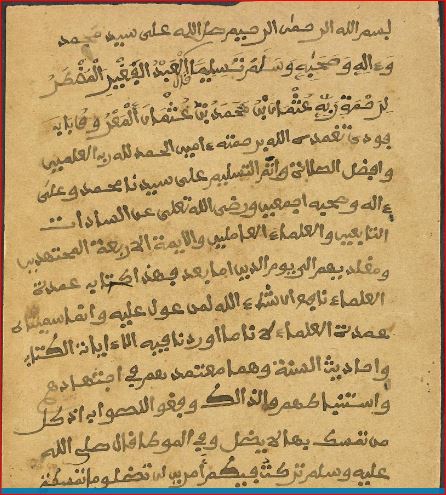 بسم الله الرحمن الرحيم صلى الله على سيدنا محمد
وءاله وصحبه وسلم تسليما قال العبد الفقير المضطر
لرحمة ربه عثمان بن محمد بن عثمان المعروف بابن
فودي تغمده الله برحمته ءامين الحمد لله رب العلمين
وافضل الصلاة واتم التسليم على سيدنا محمد وعلى
ءاله وصحبه اجمعين ورضي الله تعلى عن السادات
التابعين والعلماء العاملين والايمة الاربعة المجتهدين
ومقلديهم الى يوم الدين اما بعد فهذا كتاب عمدة
العلماء نافع ان شاء الله لمن عول عليه وانما سميته
عمدة العلماء لانا ما اوردنا فيه الا ءايات الكتاب
واحاديث السنة وهما معتمدهم في اجتهادهم
واستنباطهم والذالك وفقوا للصواب اذ كل
من تمسك بها لا يضل وفي الموطا قال صلى الله
عليه وسلم تركت فيكم أمرين لن تضلوا ما تمسكتم